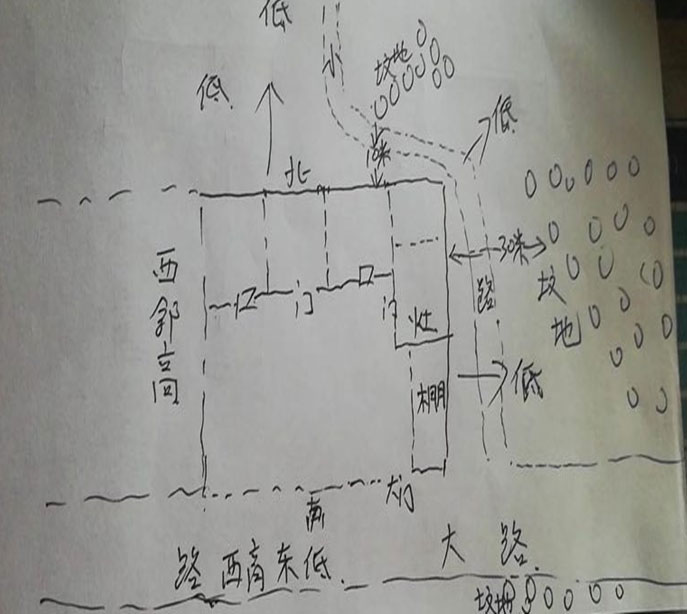 低
小
坟地
低
低
北
10米
西邻高
30米
坟地
路
口
门
口
门
灶
棚
低
南
大门
大路
路西高东低.
坟地